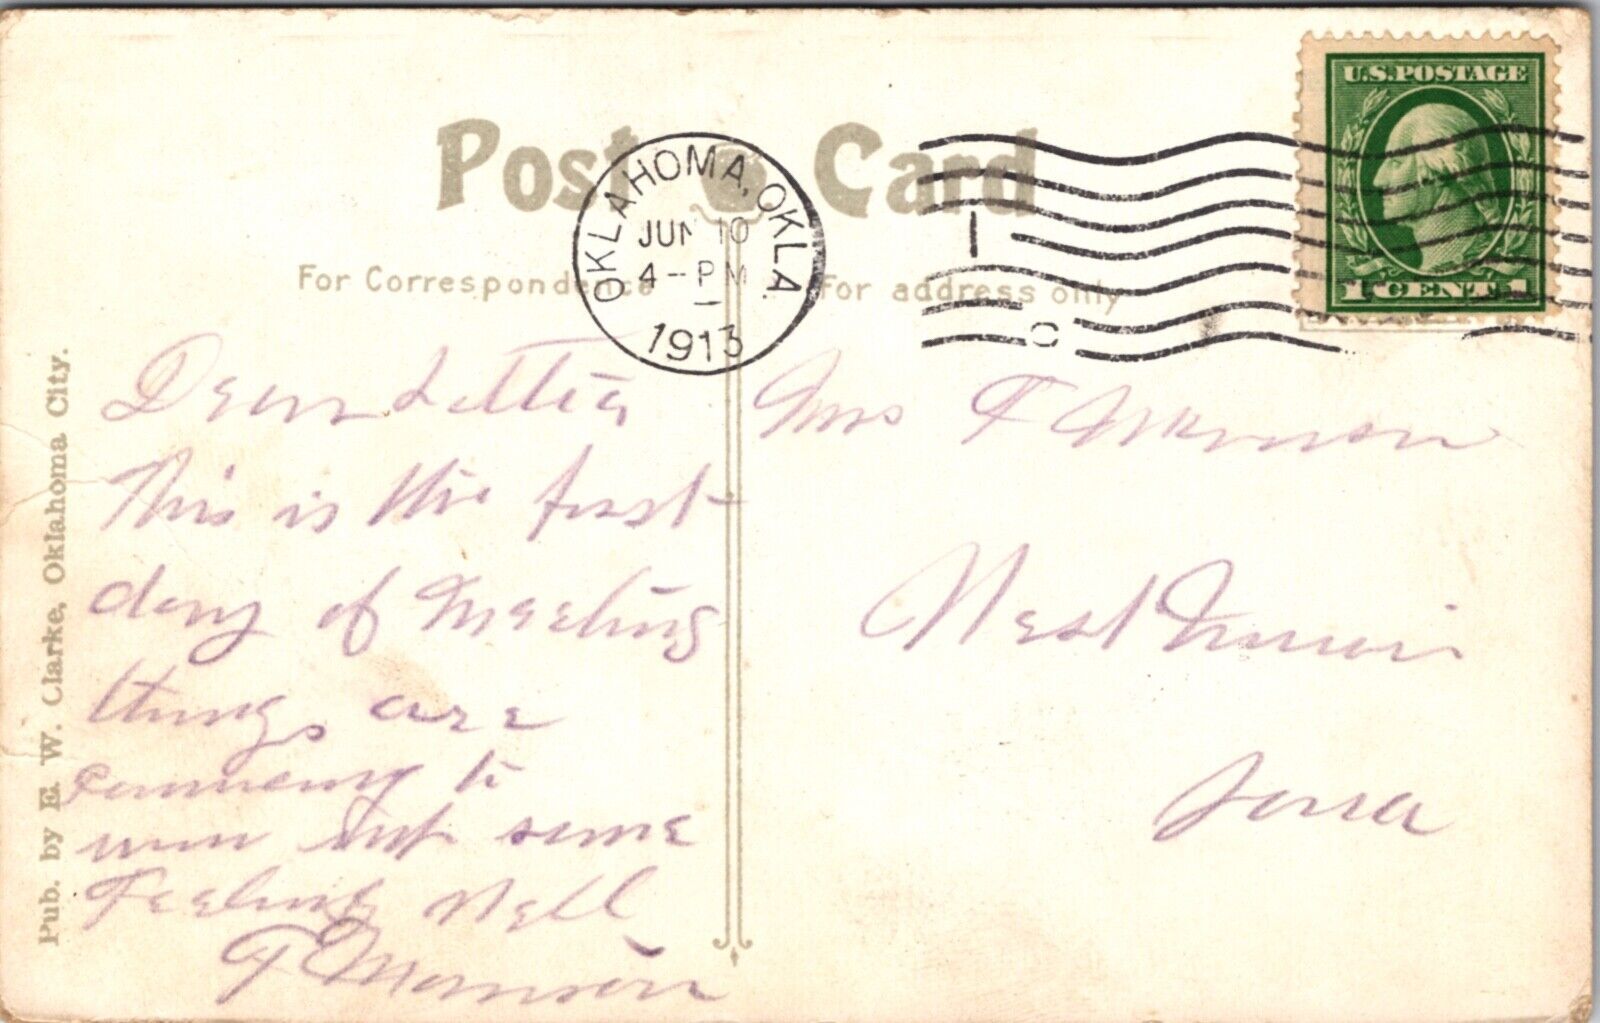 Post Card
U.S. POSTAGE
1 CENT 1
OKLAHOMA, OKLA.
JUN 10
4-PM
1913
1
C
For Correspondence
For address only
Dear Lettia
This is the first
day of Meeting
things are
to
some
Feeling Well
F Monson
Mrs F Monson
West
Iowa
Pub. by E. W. Clarke, Oklahoma City.